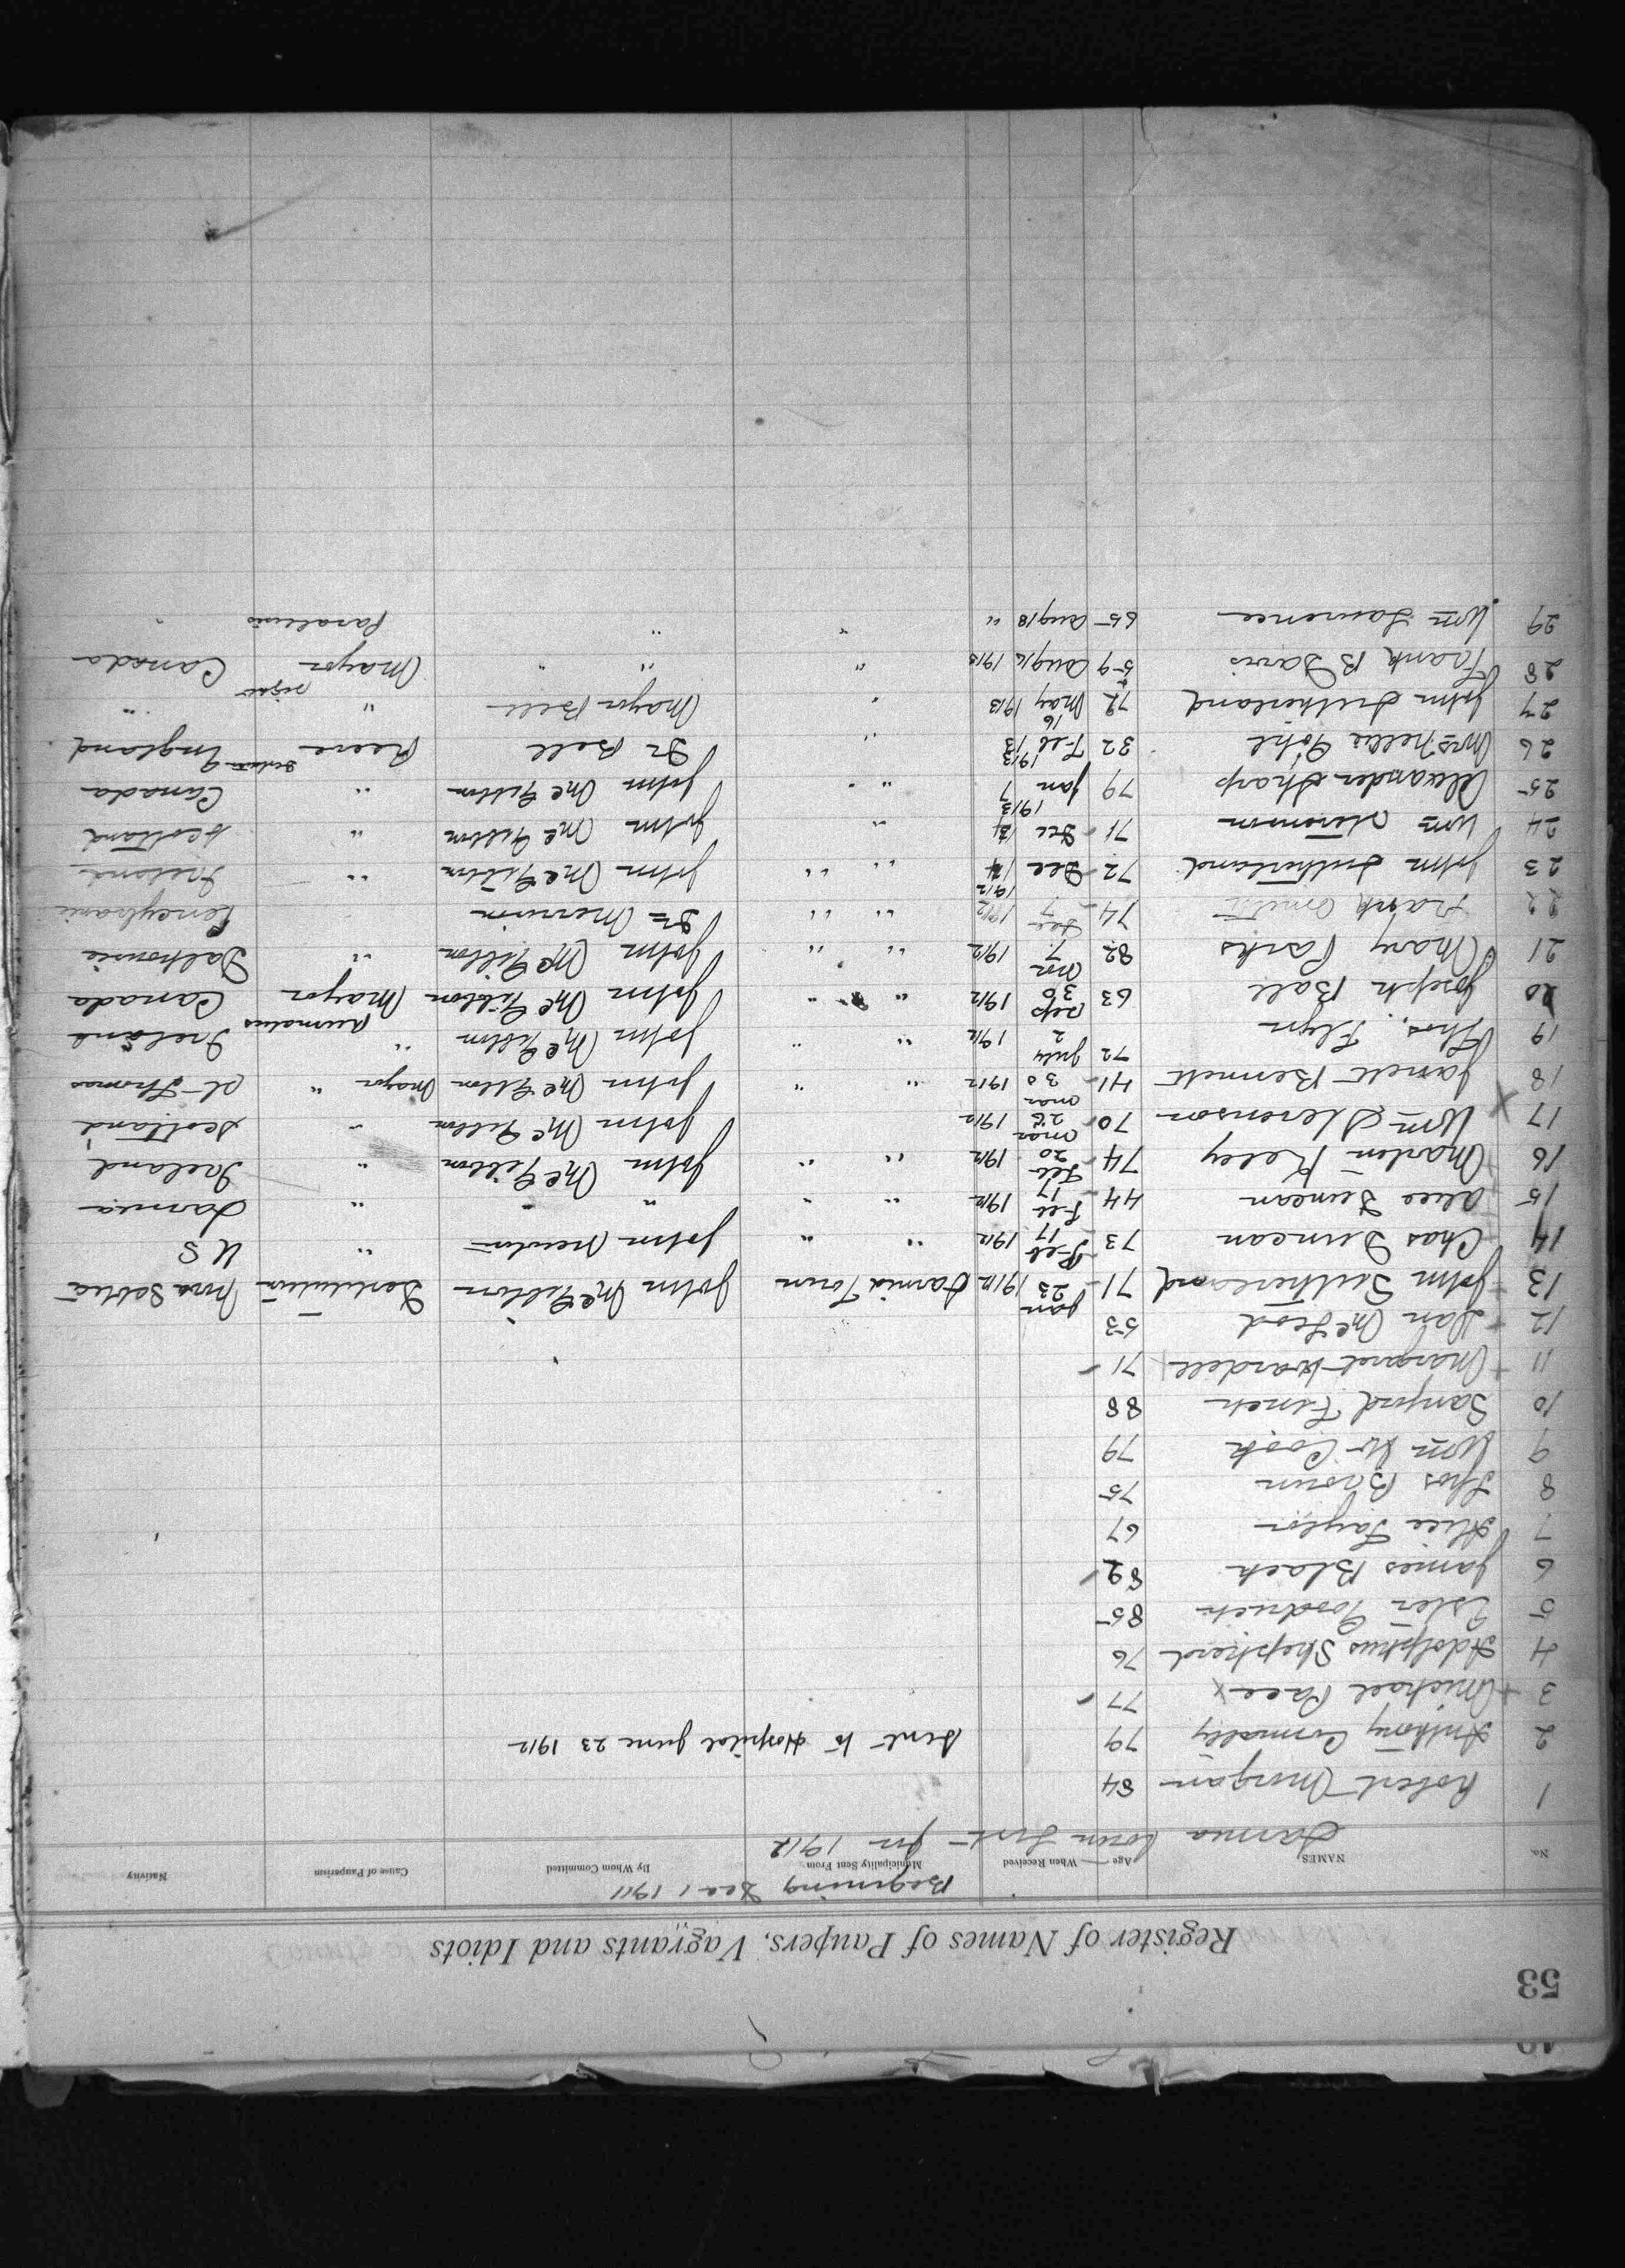 53
Register of Names of Paupers, Vagrants and Idiots
Beginning Dec 1 1911
No. NAMES Age When Received Municipality Sent From By Whom Committed Cause of Pauperism Nativity
Sarnia Town List for 1912
1 Robert Morgan 84
2 Anthony Connally 79 Sent to Hospital June 23 1912
3 Michael Pace x 77
4 Adolphus Shepherd 76
5 Ester Goodrich 85
6 James Black 82
7 Alice Taylor 67
8 Thos Brown 75
9 Wm W Cook 79
10 Sanford Finch 88
11 Margaret Wardell 71
12 Dan McLeod 53
13 John Sutherland 71 Jan 23 1912 Sarnia Town John McGibbon Destitution Nova Scotia
14 Chas Duncan 73 Feb 17 1912 " " John Newton " U S
15 Alice Duncan 44 Feb 17 1912 " " " " " Sarnia
16 Martin Keley 74 Feb 20 1912 " " John McGibbon " Ireland
17 Wm Stevenson 70 Mar 28 1912 John McGibbon " Scotland
18 Janett Bennett 41 Mar 30 1912 " " John McGibbon Mayor " St Thomas
19 Thos. Flyn 72 July 2 1912 " " John McGibbon " Ireland
20 Joseph Ball 63 Sep 30 1912 " " John McGibbon Mayor Canada
21 Mary Parks 82 Nov 7 1912 " " John McGibbon " Dalhousie
22 Frank 74 Dec 7 1912 " " Dr Morrison
23 John Sutherland 72 Dec 14 1912 " " John McGibbon " Ireland
24 Wm Stevenson 71 Dec " John McGibbon " Scotland
25 Alexander Sharp 79 Jan 7 1913 " " John McGibbon " Canada
26 Mrs Nellie 32 Feb 13 1913 " Dr Bell Reeve England
27 John Sutherland 72 May 16 1913 " Mayor Bell " "
28 Frank B Davis 59 Aug 16 1913 " " " Mayor Canada
29 Wm Lawrence 65 Aug 18 " " " Paralisis "